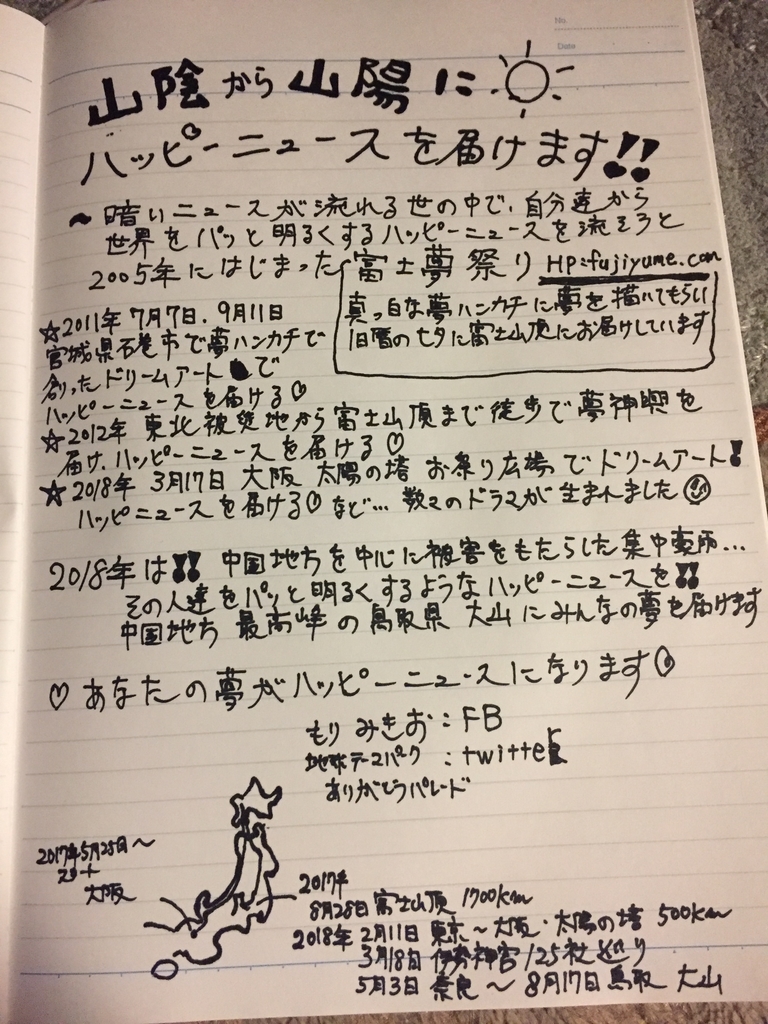 No.
Date
山陰から山陽に
ハッピーニュースを届けます!!
~ 暗いニュースが流れる世の中で、自分達から
世界をパッと明るくするハッピーニュースを流そうと
2005年にはじまった富士夢祭り HP:fujiyume.com
真っ白な夢ハンカチに夢を描いてもらい
旧暦の七夕に富士山頂にお届けしています
☆2011年 7月7日、9月11日
宮城県石巻市で夢ハンカチで
創ったドリームアートで
ハッピーニュースを届ける♡
☆2012年 東北被災地から富士山頂まで徒歩で夢神輿を
届け、ハッピーニュースを届ける♡
☆2018年 3月17日 大阪 太陽の塔 お祭り広場でドリームアート!
ハッピニュースを届ける♡など… 数々のドラマが生まれました☺
2018年は!! 中国地方を中心に被害をもたらした集中豪雨…
その人達をパッと明るくするようなハッピーニュースを!!
中国地方 最高峰の鳥取県 大山にみんなの夢を届けます
♡ あなたの夢がハッピーニュースになります♡
もり みきお:FB
地球テーマパーク:twitter
ありがとうパレード
2017年5月28日~
スタート
大阪
2017年
8月28日富士山頂 1700km
2018年 2月11日 東京~大阪・太陽の塔 500km
3月18日 伊勢神宮 125社巡り
5月3日 奈良~8月17日鳥取 大山